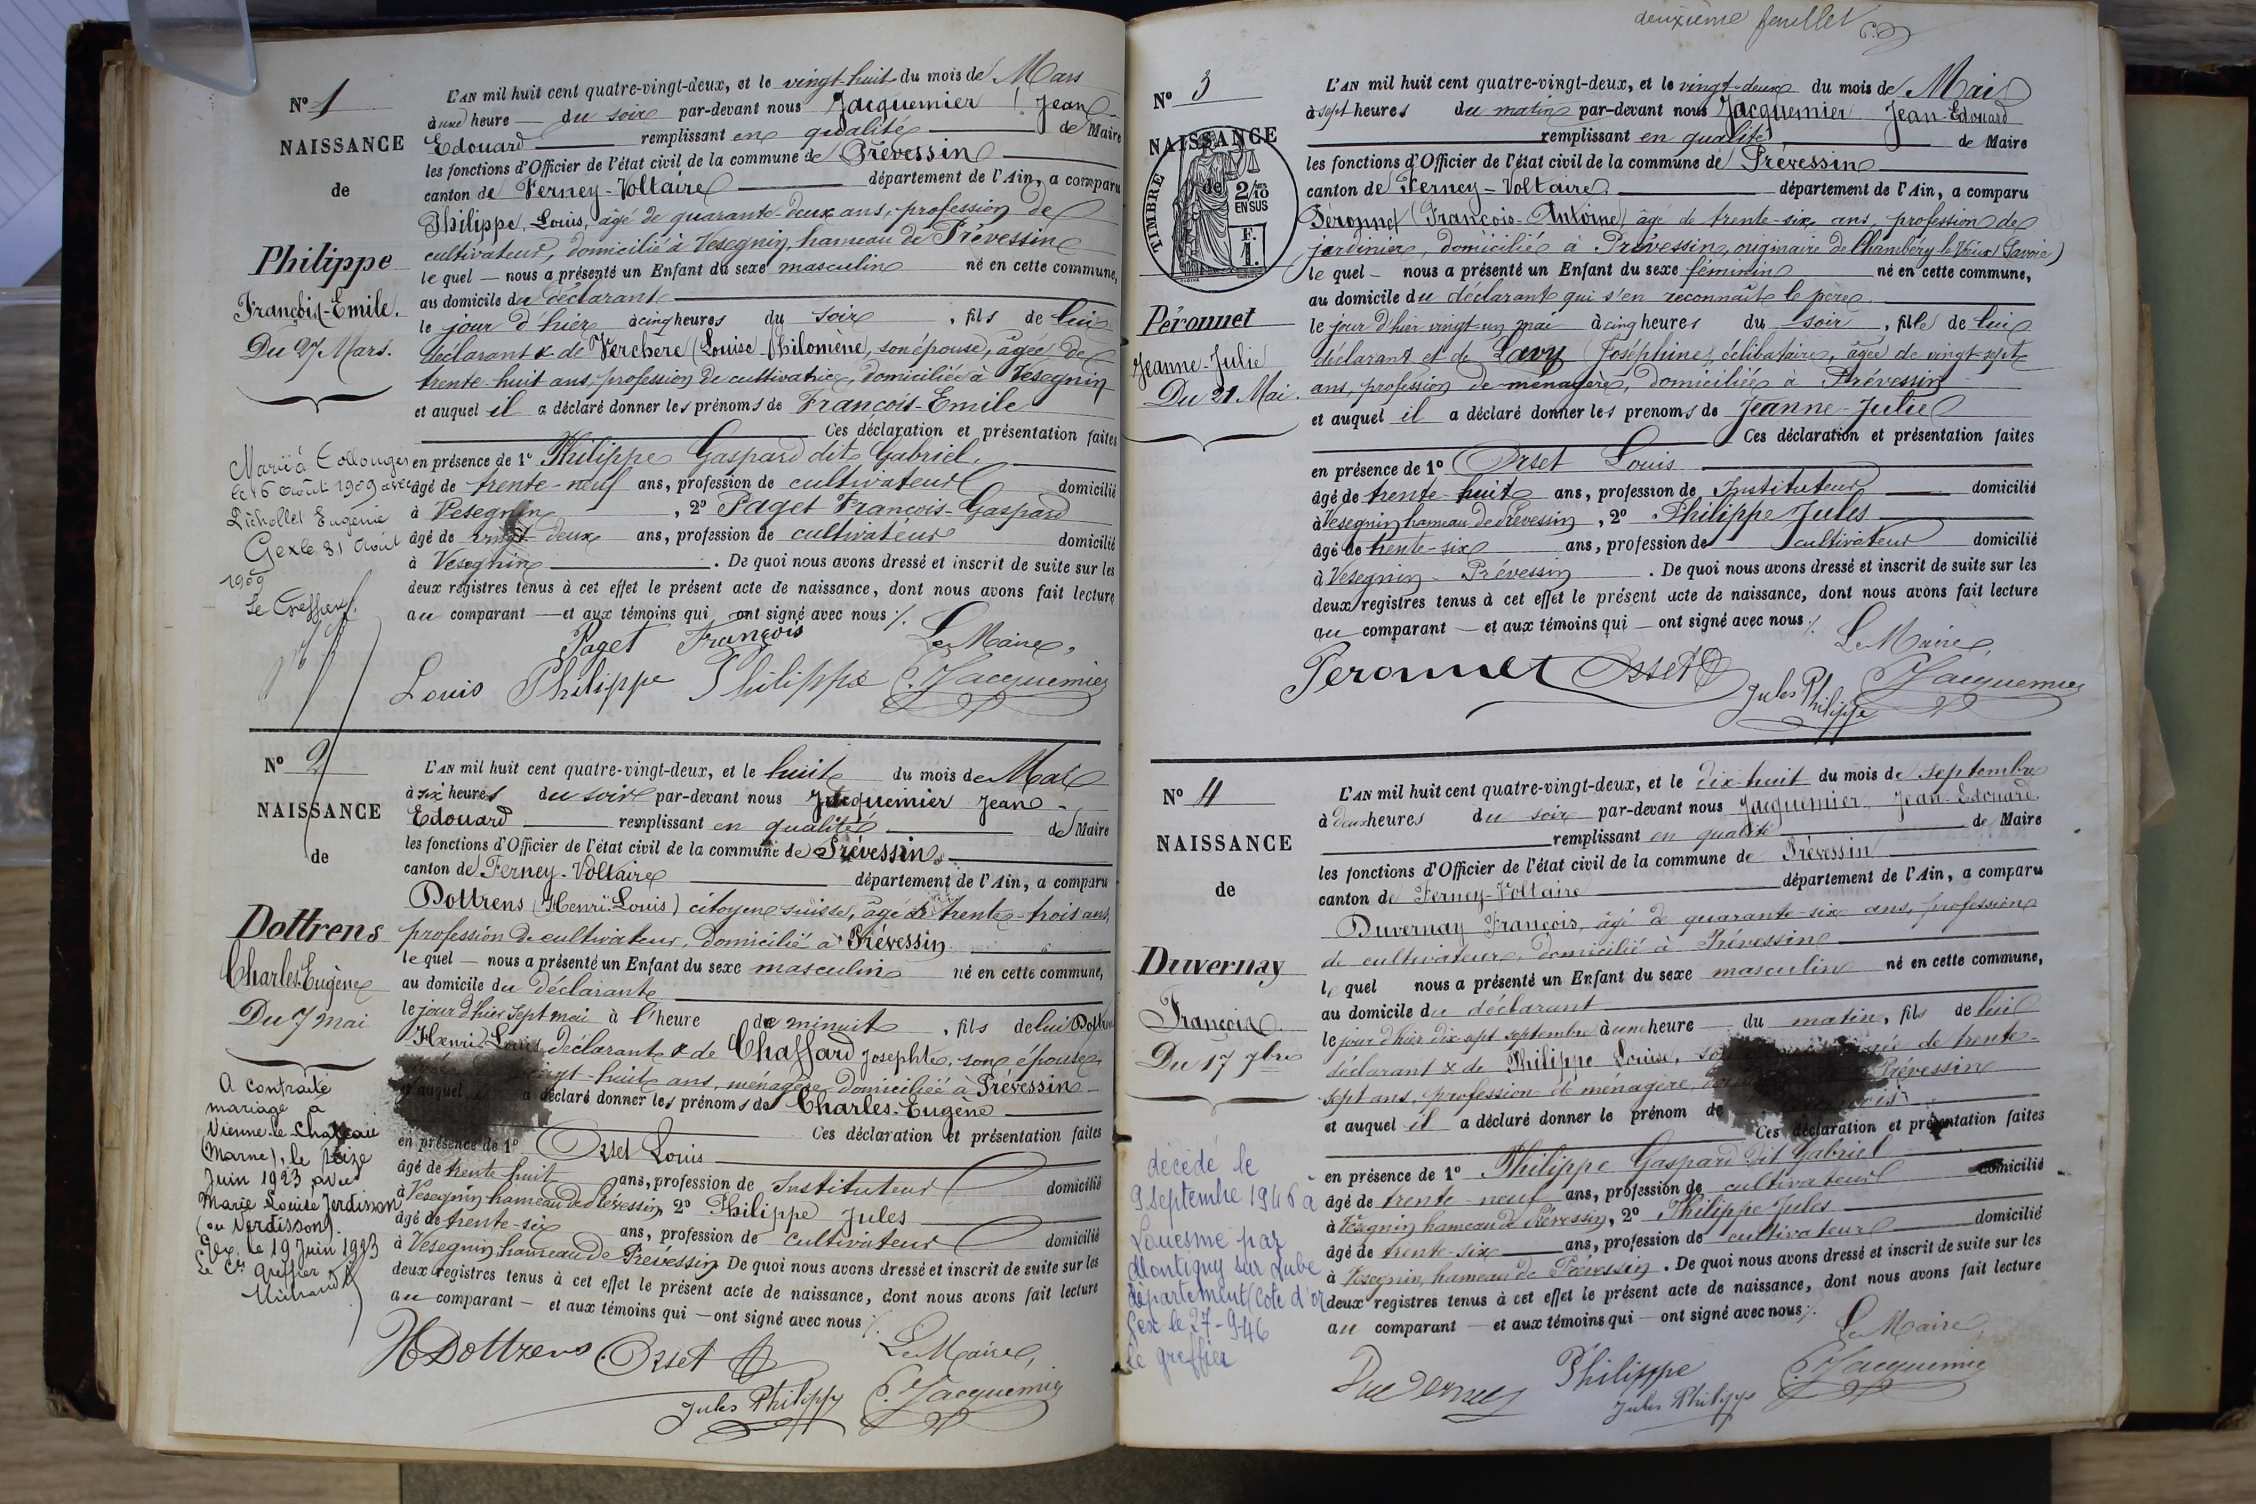 Nº 1
NAISSANCE
de
Philippe
François-Emile.
Du 27 Mars.
Marié à Collonges
le 16 Août 1909 avec
Eugénie
Gex le 31 Août
1909
Le Greffier
L'AN mil huit cent quatre-vingt-deux, et le vingt-huit du mois de Mars
à une heure du soir par-devant nous Jacquemier Jean
Edouard remplissant en qualité de Maire
les fonctions d'Officier de l'état civil de la commune de Prévessin
canton de Ferney-Voltaire département de l'Ain, a comparu
Philippe, Louis, âgé de quarante-deux ans, profession de
cultivateur, domicilié à Vesegnin, hameau de Prévessin
le quel nous a présenté un Enfant du sexe masculin né en cette commune,
au domicile du déclarant
le jour d'hier à cinq heures du soir, fils de lui
déclarant & de Verchere (Louise Philomène, son épouse, âgée de
trente-huit ans, profession de cultivatrice, domiciliée à Vesegnin
et auquel il a déclaré donner les prénoms de François-Emile
Ces déclaration et présentation faites
en présence de 1º Philippe Gaspard dit Gabriel,
âgé de trente-neuf ans, profession de cultivateur domicilié
à Vesegnin, 2º Paget François-Gaspard
âgé de vingt-deux ans, profession de cultivateur domicilié
à Vesegnin. De quoi nous avons dressé et inscrit de suite sur les
deux registres tenus à cet effet le présent acte de naissance, dont nous avons fait lecture
au comparant et aux témoins qui ont signé avec nous
Paget François Le Maire,
Louis Philippe Philippe E. Jacquemier
Nº 2
NAISSANCE
de
Dottrens
Charles-Eugène
Du 7 mai
A contracté
mariage à
Vienne-le-Château
(Marne), le seize
Juin 1923 avec
Marie Louise Jerdisson
(ou Verdisson).
Gex, le 19 Juin 1923
Le Cis Greffier
L'AN mil huit cent quatre-vingt-deux, et le huit du mois de Mai
à six heures du soir par-devant nous Jacquemier Jean-
Edouard remplissant en qualité de Maire
les fonctions d'Officier de l'état civil de la commune de Prévessin
canton de Ferney-Voltaire département de l'Ain, a comparu
Dottrens (Henri-Louis) citoyen suisse, âgé de trente-trois ans,
profession de cultivateur, domicilié à Prévessin
le quel nous a présenté un Enfant du sexe masculin né en cette commune,
au domicile du déclarant
le jour d'hier sept mai à l'heure de minuit, fils de lui Dottrens
Henri-Louis, déclarant & de Chaffard Josephte, son épouse,
vingt-huit ans, ménagère domiciliée à Prévessin
et auquel a déclaré donner les prénoms de Charles-Eugène
Ces déclaration et présentation faites
en présence de 1º Orset Louis
âgé de trente-huit ans, profession de Instituteur domicilié
à Vesegnin hameau de Prévessin 2º Philippe Jules
âgé de trente-six ans, profession de cultivateur domicilié
à Vesegnin hameau de Prévessin De quoi nous avons dressé et inscrit de suite sur les
deux registres tenus à cet effet le présent acte de naissance, dont nous avons fait lecture
au comparant et aux témoins qui ont signé avec nous
HDottrens Orset Le Maire,
Jules Philippe E. Jacquemier
deuxième feuillet
Nº 3
NAISSANCE
de
TIMBRE
2/10
EN SUS
F.
1.
Péronnet
Jeanne-Julie
Du 21 Mai.
L'AN mil huit cent quatre-vingt-deux, et le vingt-deux du mois de Mai
à sept heures du matin par-devant nous Jacquemier Jean-Edouard
remplissant en qualité de Maire
les fonctions d'Officier de l'état civil de la commune de Prévessin
canton de Ferney-Voltaire département de l'Ain, a comparu
Peronnet (François-Antoine) âgé de trente-six ans, profession de
jardinier, domicilié à Prévessin, originaire de Chambéry le Vieux (Savoie)
le quel nous a présenté un Enfant du sexe féminin né en cette commune,
au domicile du déclarant qui s'en reconnaît le père
le jour d'hier vingt-un mai à cinq heures du soir, fille de lui
déclarant et de Lavy (Joséphine) célibataire, âgée de vingt-sept
ans, profession de ménagère, domiciliée à Prévessin
et auquel il a déclaré donner les prénoms de Jeanne-Julie
Ces déclaration et présentation faites
en présence de 1º Orset Louis
âgé de trente-huit ans, profession de Instituteur domicilié
à Vesegnin hameau de Prévessin, 2º Philippe Jules
âgé de trente-six ans, profession de cultivateur domicilié
à Vesegnin-Prévessin. De quoi nous avons dressé et inscrit de suite sur les
deux registres tenus à cet effet le présent acte de naissance, dont nous avons fait lecture
au comparant et aux témoins qui ont signé avec nous
Le Maire,
Peronnet Orset Jules Philippe E. Jacquemier
Nº 4
NAISSANCE
de
Duvernay
François
Du 17 7bre
décédé le
9 septembre 1946 à
Louesme par
Montigny sur Aube
département (Côte d'or)
Gex le 27-9-46
Le greffier
L'AN mil huit cent quatre-vingt-deux, et le dix-huit du mois de septembre
à deux heures du soir par-devant nous Jacquemier Jean-Edouard
remplissant en qualité de Maire
les fonctions d'Officier de l'état civil de la commune de Prévessin
canton de Ferney-Voltaire département de l'Ain, a comparu
Duvernay François, âgé de quarante-six ans, profession
de cultivateur, domicilié à Prévessin
le quel nous a présenté un Enfant du sexe masculin né en cette commune,
au domicile du déclarant
le jour d'hier dix-sept septembre à une heure du matin, fils de lui
déclarant & de Philippe Louise, de trente-
sept ans, profession de ménagère, Prévessin
et auquel il a déclaré donner le prénom de
Ces déclaration et présentation faites
en présence de 1º Philippe Gaspard dit Gabriel
âgé de trente-neuf ans, profession de cultivateur domicilié
à Vésegnin hameau de Prévessin, 2º Philippe Jules
âgé de trente-six ans, profession de cultivateur domicilié
à Vesegnin, hameau de Prévessin. De quoi nous avons dressé et inscrit de suite sur les
deux registres tenus à cet effet le présent acte de naissance, dont nous avons fait lecture
au comparant et aux témoins qui ont signé avec nous
Le Maire,
Duvernay Philippe Jules Philippe E. Jacquemier